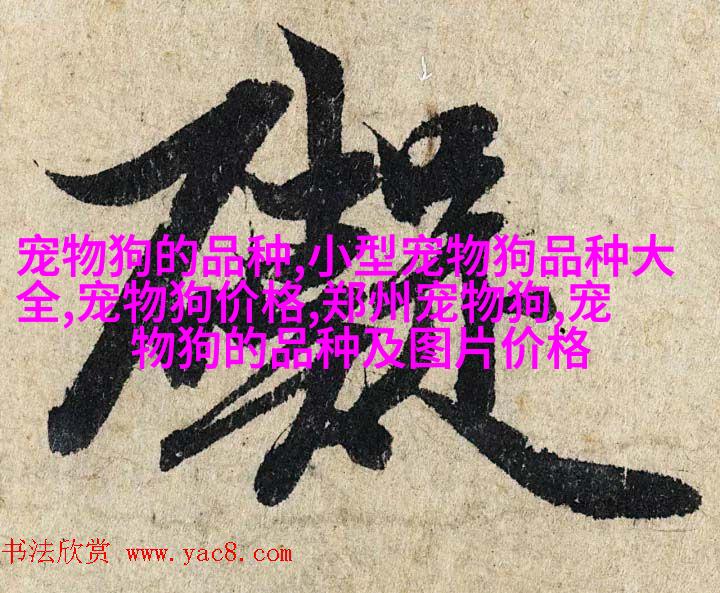 宠物狗的品种,小型宠物狗品种大
全,宠物狗价格,郑州宠物狗,宠
物狗的品种及图片价格
书法欣赏 www.yac8.com